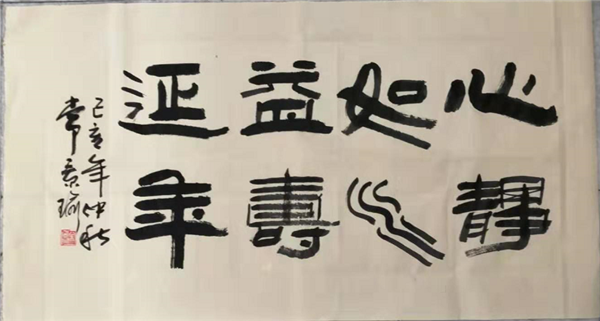 心靜
如水
益壽
延年
己亥年仲秋
常景瑜